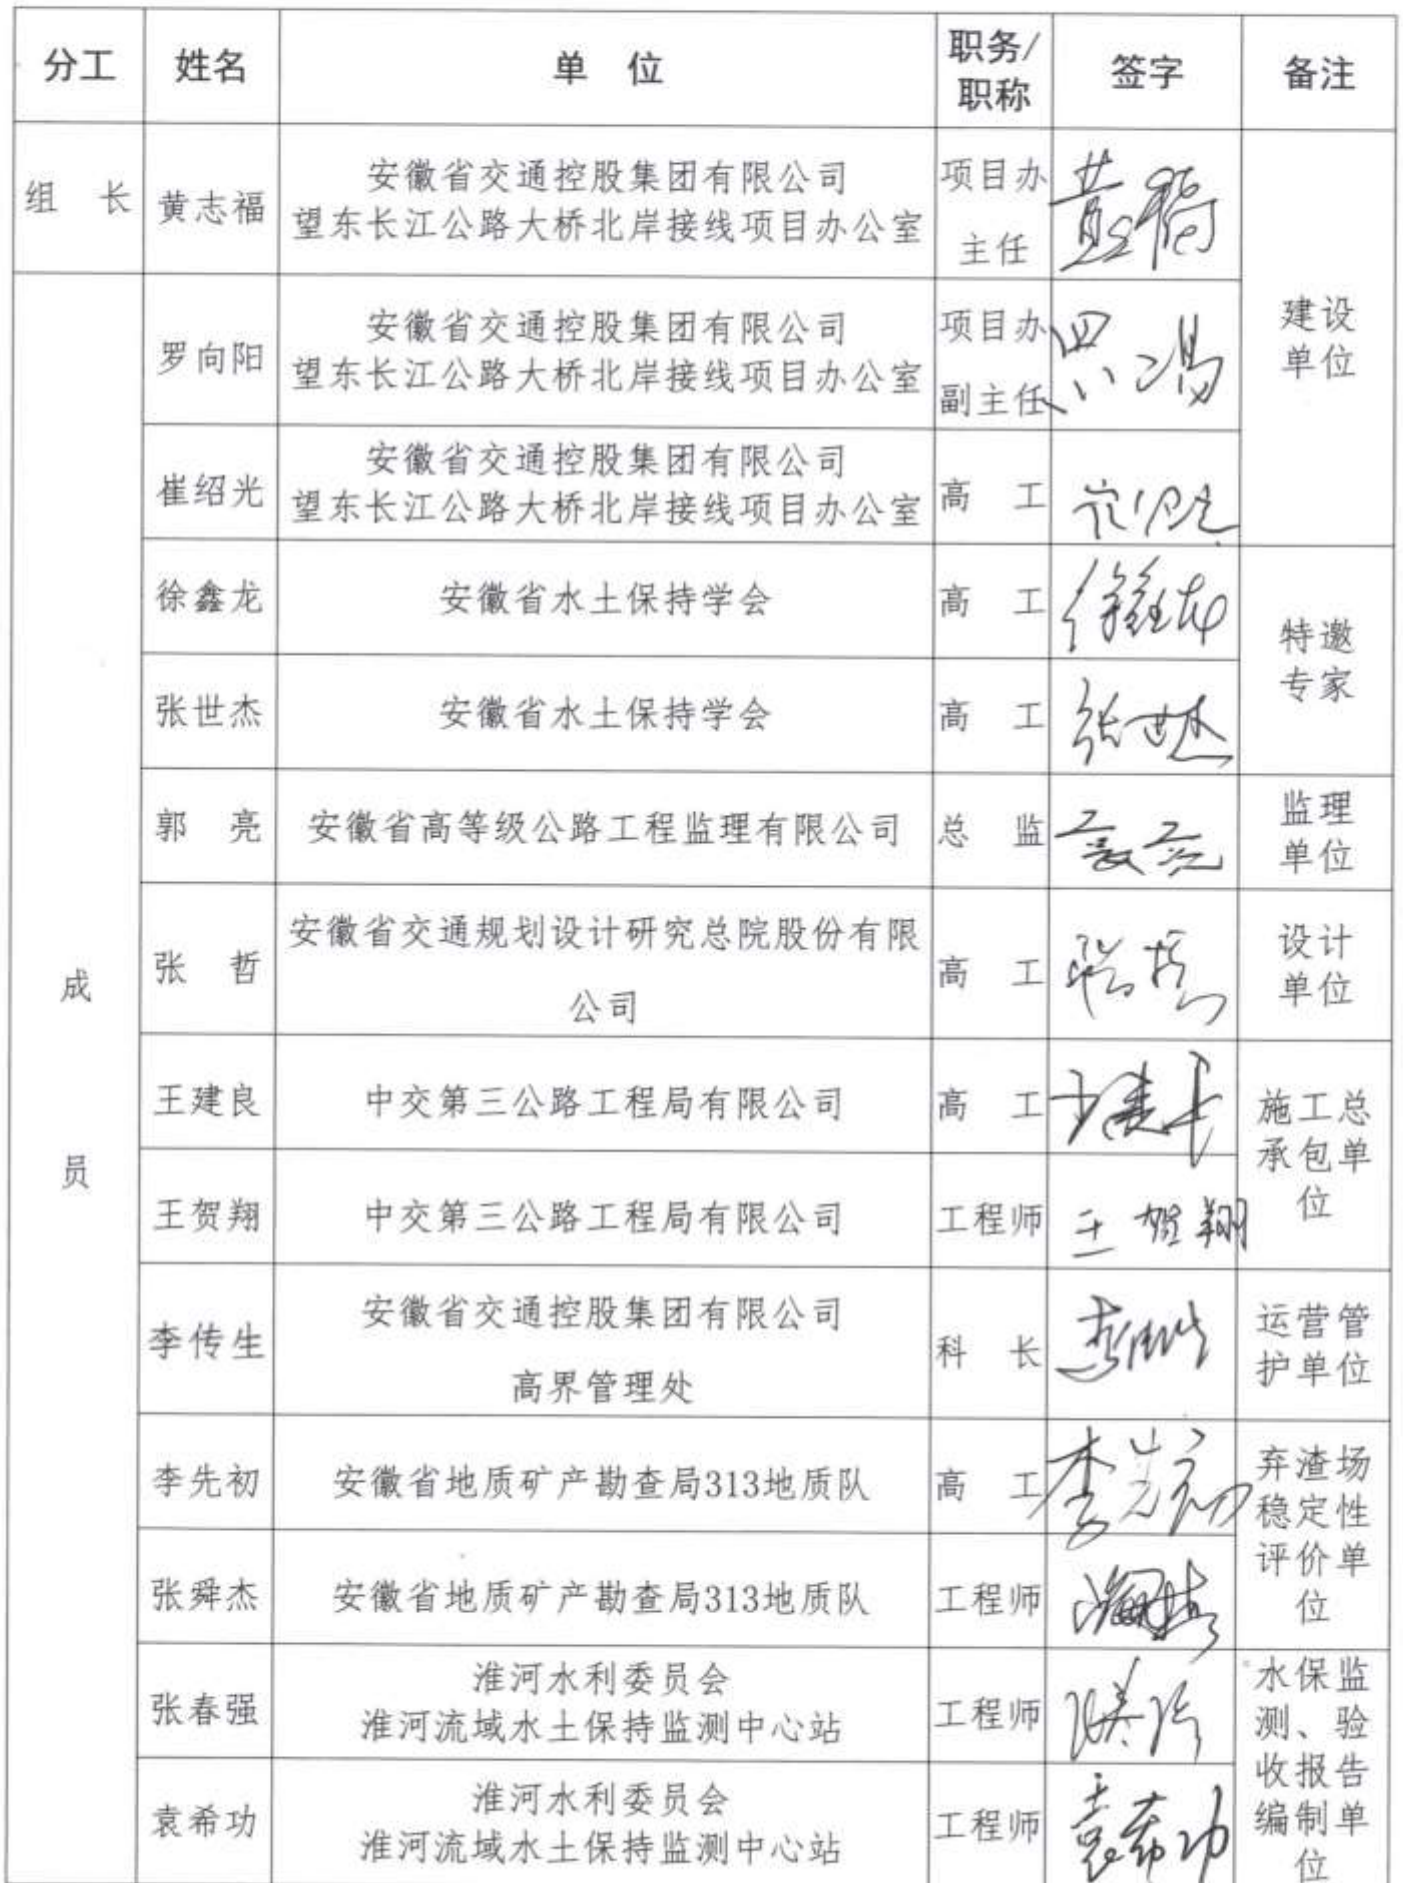 分工 姓名 单 位 职务/职称 签字 备注
组 长 黄志福 安徽省交通控股集团有限公司
望东长江公路大桥北岸接线项目办公室 项目办
主任
建设
单位
成
员
罗向阳 安徽省交通控股集团有限公司
望东长江公路大桥北岸接线项目办公室 项目办
副主任
崔绍光 安徽省交通控股集团有限公司
望东长江公路大桥北岸接线项目办公室 高 工
徐鑫龙 安徽省水土保持学会 高 工 徐鑫龙
特邀
专家
张世杰 安徽省水土保持学会 高 工 张世杰
郭 亮 安徽省高等级公路工程监理有限公司 总 监
监理
单位
张 哲 安徽省交通规划设计研究总院股份有限
公司 高 工
设计
单位
王建良 中交第三公路工程局有限公司 高 工
施工总
承包单
位
王贺翔 中交第三公路工程局有限公司 工程师 王贺翔
李传生 安徽省交通控股集团有限公司
高界管理处 科 长
运营管
护单位
李先初 安徽省地质矿产勘查局313地质队 高 工 李先初
弃渣场
稳定性
评价单
位
张舜杰 安徽省地质矿产勘查局313地质队 工程师
张春强 淮河水利委员会
淮河流域水土保持监测中心站 工程师
水保监
测、验
收报告
编制单
位
袁希功 淮河水利委员会
淮河流域水土保持监测中心站 工程师 袁希功